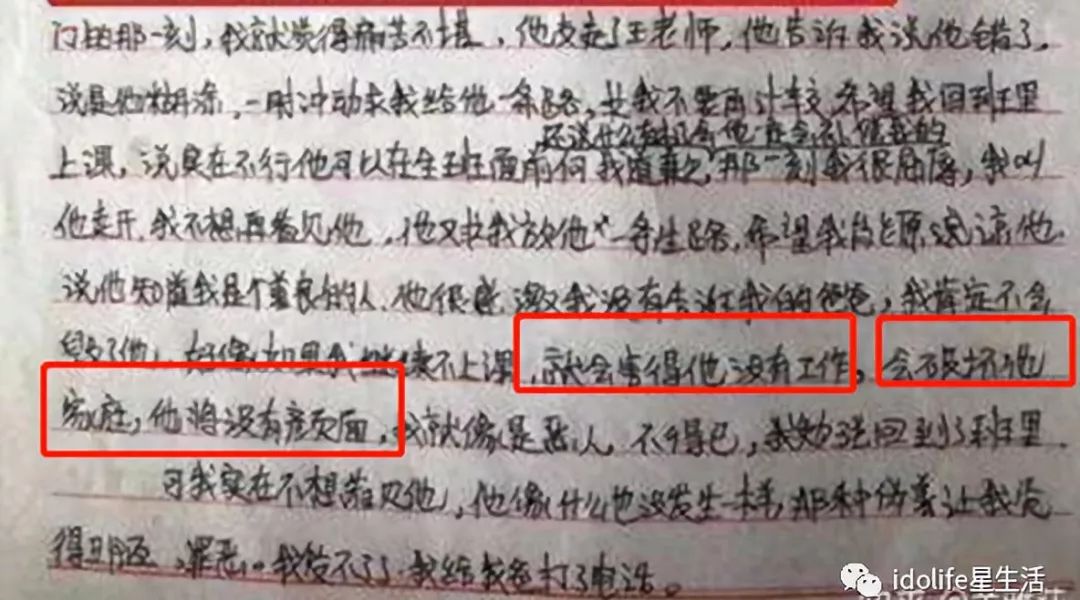 门的那一刻，我就觉得痛苦不堪，他支走了王老师，他告诉我说他错了，
说是他糊涂，一时冲动求我给他一条路，让我不要再计较，希望我回到班里
还说什么有机会他
上课，说实在不行他可以在全班面前向我道歉，那一刻我很屈辱，我叫
他走开，我不想再看见他，他又求我放他一条生路，希望我能原谅他
说他知道我是个善良的人，他很感激我没有告诉我的爸爸，我肯定不会
毁了他，好像如果我继续不上课，就会害得他没有工作，会破坏他
家庭，他将没有颜面，我就像是恶人，不得已，我勉强回到了班里
可我实在不想看见他，他像什么也没发生一样，那种伪善让我觉
得肮脏，罪恶。我受不了，我给我爸打了电话。
idolife星生活